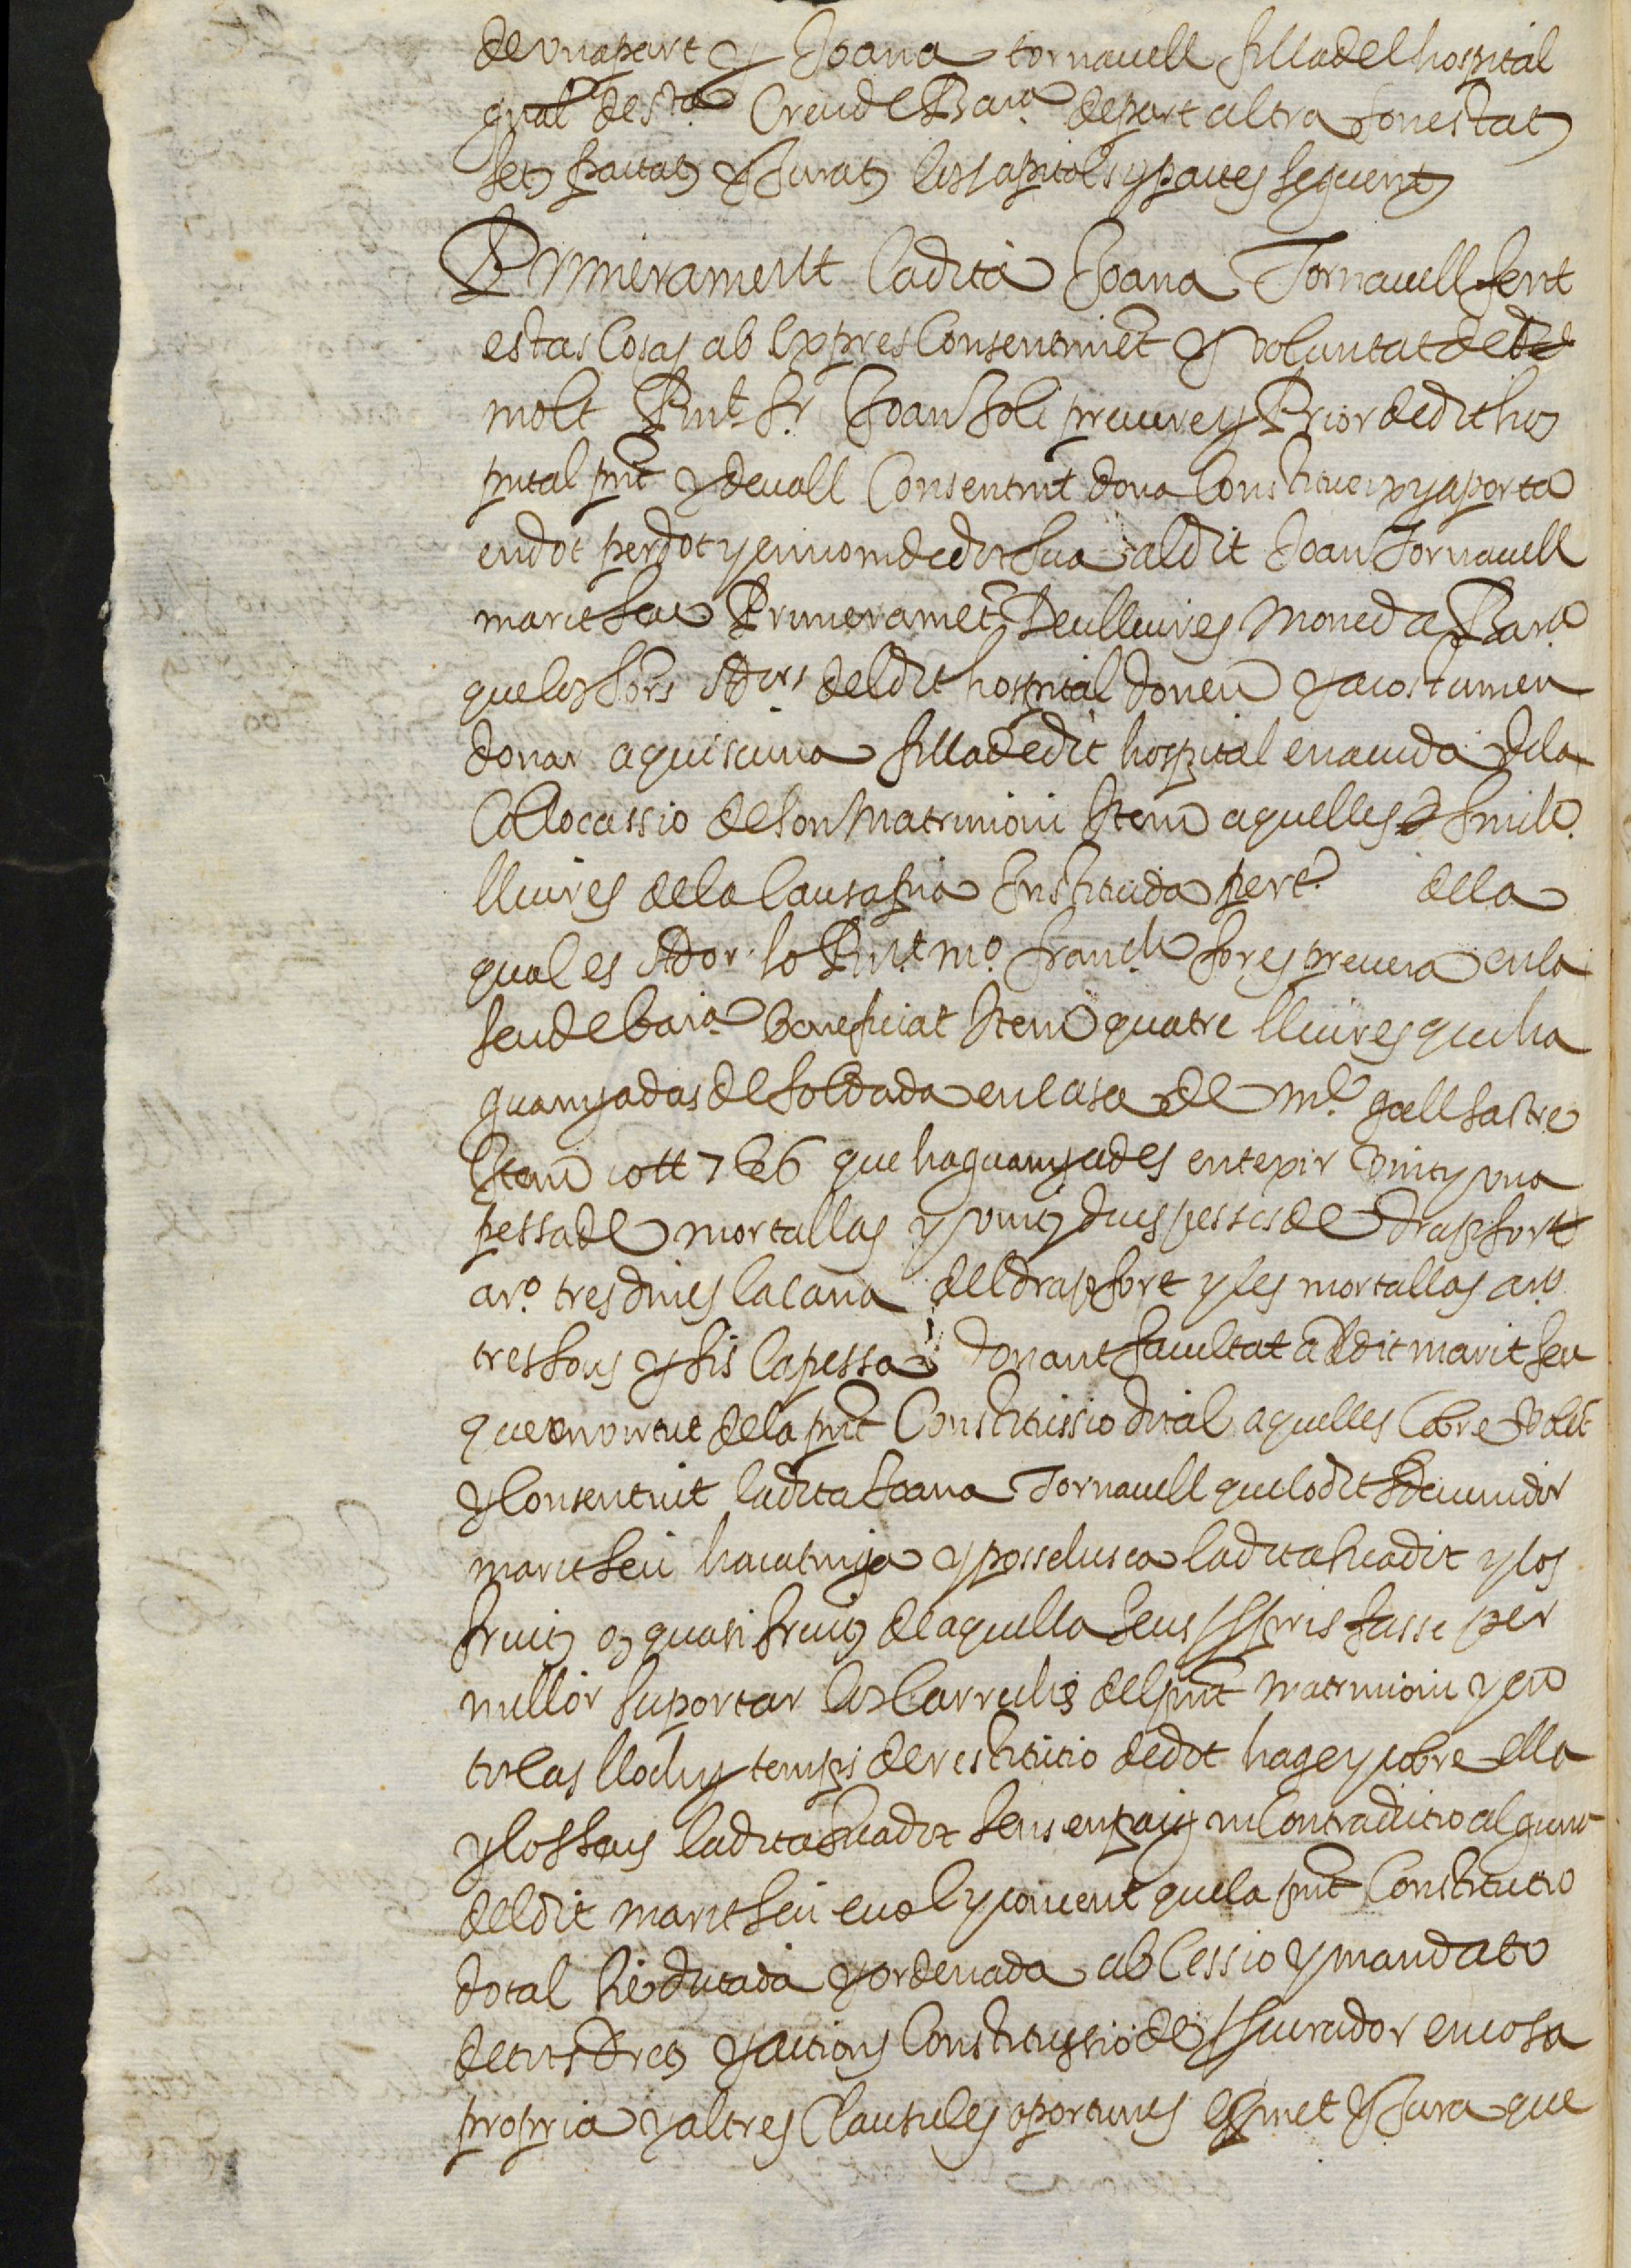 de una part y Joana tornavell filla del hospital
gnal de Sta Creu de Bara de part altra son estats
fets pactats y jurats los capitols y pactes seguents
Primerament la dita Joana Tornavell fent
estas cosas ab expres consentimet y voluntat del
molt Rnt Sr Joan Soli prevere y Prior de dit hos
pital pnt y devall consentint dona constitueix y aporta
en dot per dot y en nom de dot sua al dit Joan Tornavell
marit seu Primeramet Deu lliures moneda Bara
que los Sors Adors del dit hospital donen y acostumen
donar a quiscuna filla de dit hospital en aiuda de la
Collocassio de son Matrimoni Item aquelles
lliures de la causa pia Instituida per t. de la
qual es Ador lo Rnt mo franch fores prevera en la
seu de bara beneficiat Item quatre lliures que ha
guanyadas de soldada en casa de m. gall sastre
Item 10 ll 7 s 6 que ha guanyades en texir vint y una
pessa de mortallas y vint y dues pesses de drap fort
a ro. tres dines la cana del drap fort y les mortallas a ro
tres sous y sis la pessa donant facultat al dit marit seu
que en virtut de la pnt Constitussio dotal aquelles cobre Volet
y consentint la dita Joana Tornavell que lo dit sdevenidor
marit seu haia tinga y possehesca la dita sua dot y los
fruits o quasi fruits de aquella seus propris fasse per
millor suportar los carrechs del pnt matrimoni y en
tot cas lloch y temps de restitutio de dot hage y cobre ella
y los seus la dita sua dot sens enpaig ni contradictio alguna
del dit marit seu e vol y convent que la pnt Constitutio
dotal sie dictada y ordenada ab cessio y mandato
de tots drets y actions Constitussio de procurador en cosa
propria y altres clausules oportunes e promet y jura que